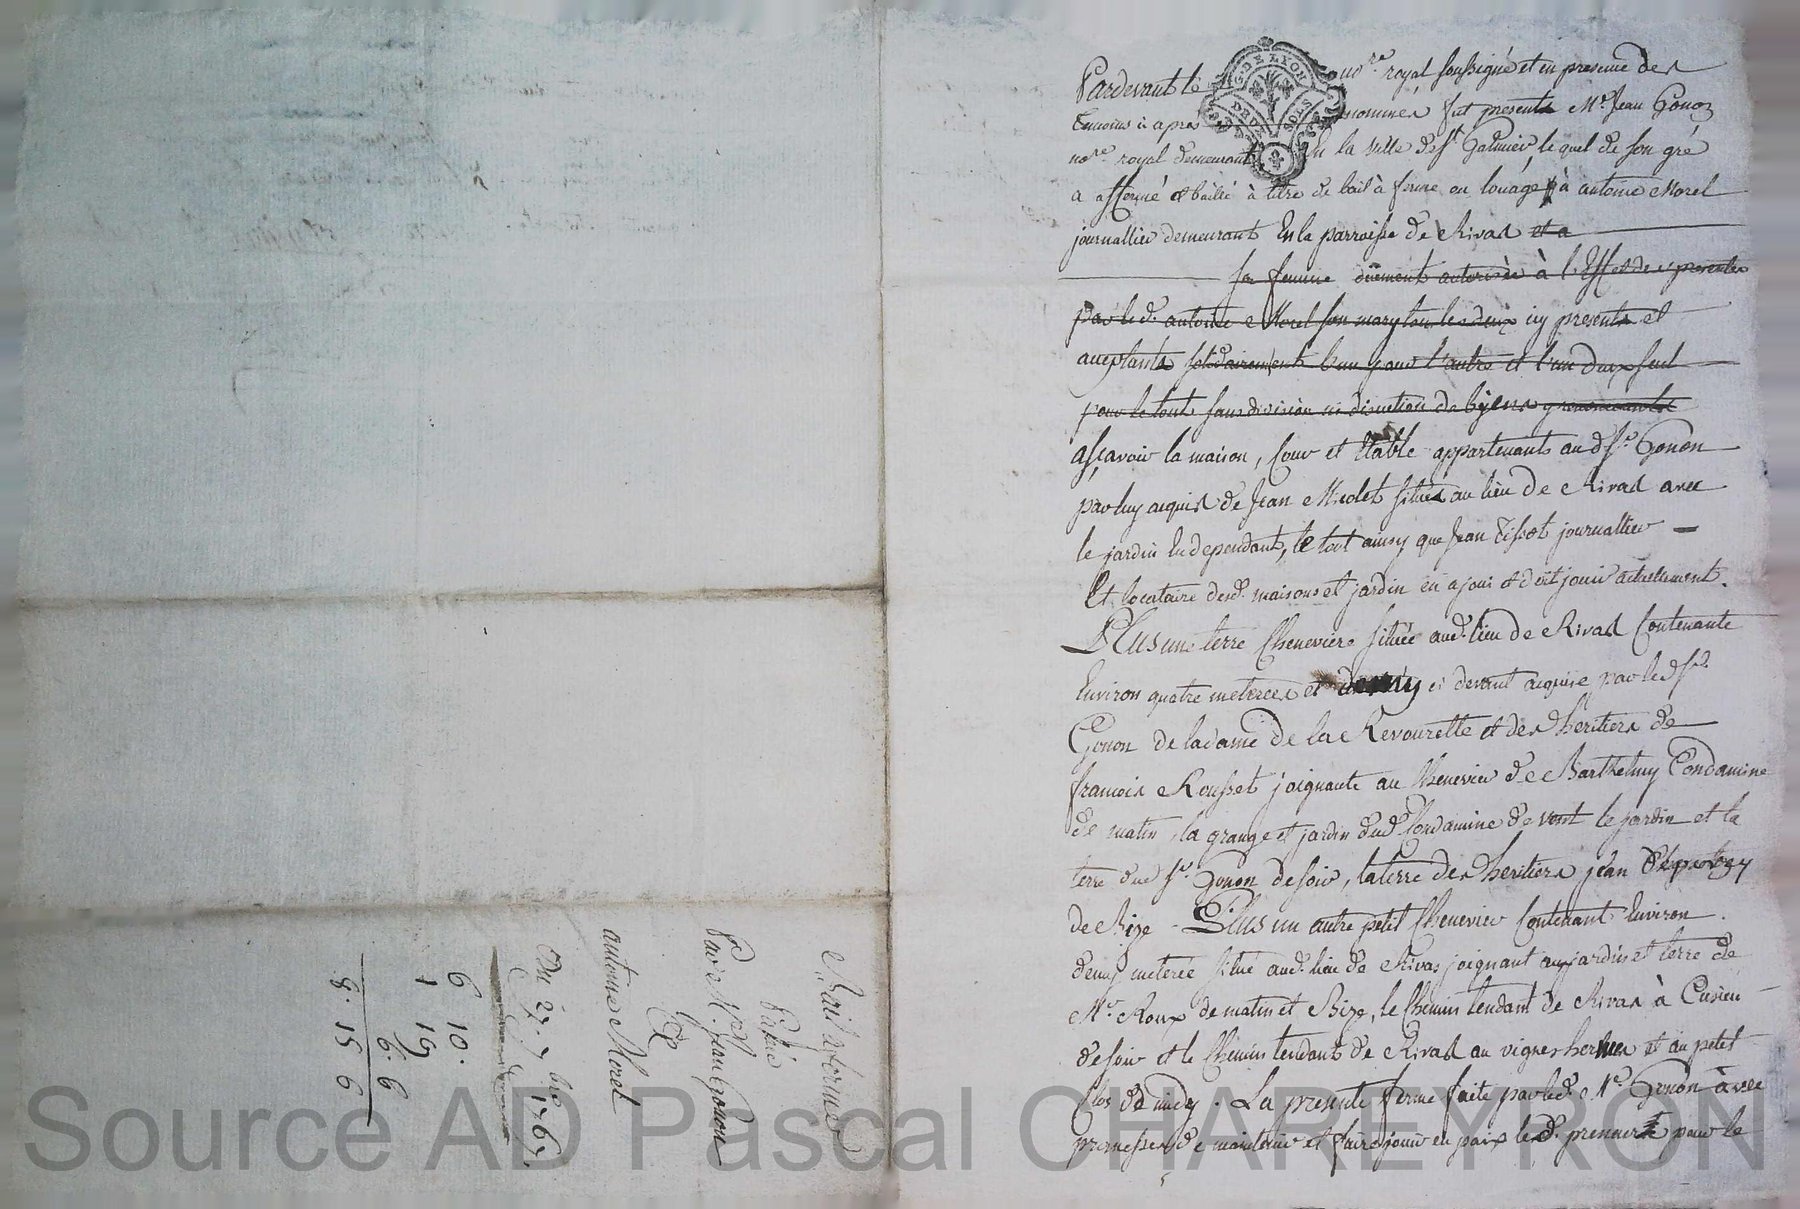 Pardevant le no.re royal soussigné et en presence des
temoins ci apres nommés fut present Me. Jean Gonon
no.re royal demeurant en la ville de St Galmier lequel de son gré
a affermé et baillé à titre de bail à ferme ou louage à antoine Morel
journallier demeurant En la parroisse de Rivas et a
sa femme düement autorisée à l'Effet des presentes
par le d. antoine Morel son mary tous les deux icy presents et
acceptants solidairement l'un pour l'autre et l'un deux seul
pour le tout sans division ni discution de biens
asçavoir la maison, Cour et Etable appartenants au d. Sr. Gonon
par luy acquis de Jean Micolet situés au lieu de Rivas avec
le jardin En dependant, le tout ainsy que Jean Tissot journallier
Et locataire desd. maisons et jardin en a joui et doit jouir actuellement.
Plus une terre Cheneviere située aud. lieu de Rivas Contenante
Environ quatre meterées et ci devant acquise par le d. Sr.
Gonon de la dame de la Revourette et des heritiers de
francois Rousset joignante au Chenevier de Barthelmy Condamine
de matin, la grange et jardin dud. Condamine de vent le jardin et la
terre dud Sr. Gonon de soir, la terre des heritiers jean
de Bize. Plus un autre petit Chenevier Contenant Environ
demy meterée situé aud. lieu de Rivas joignant au jardin et terre de
Me. Roux de matin et Bize, le Chemin tendant de Rivas à Cuzieu
de soir et le Chemin tendant de Rivas au et au petit
Clos de midy. La presente ferme faite par le d. Me. Gonon avec
promesses de maintenir et faire jouir en paix le d. preneur pour le
Bail à ferme
Passé
Par Me. Jean Gonon
à
antoine Morel
Du 27. 7bre 1767.
6 10.
1 19
6. 6
8. 15 6
G. DE LYON
DEUX SOLS
Source AD Pascal CHAREYRON